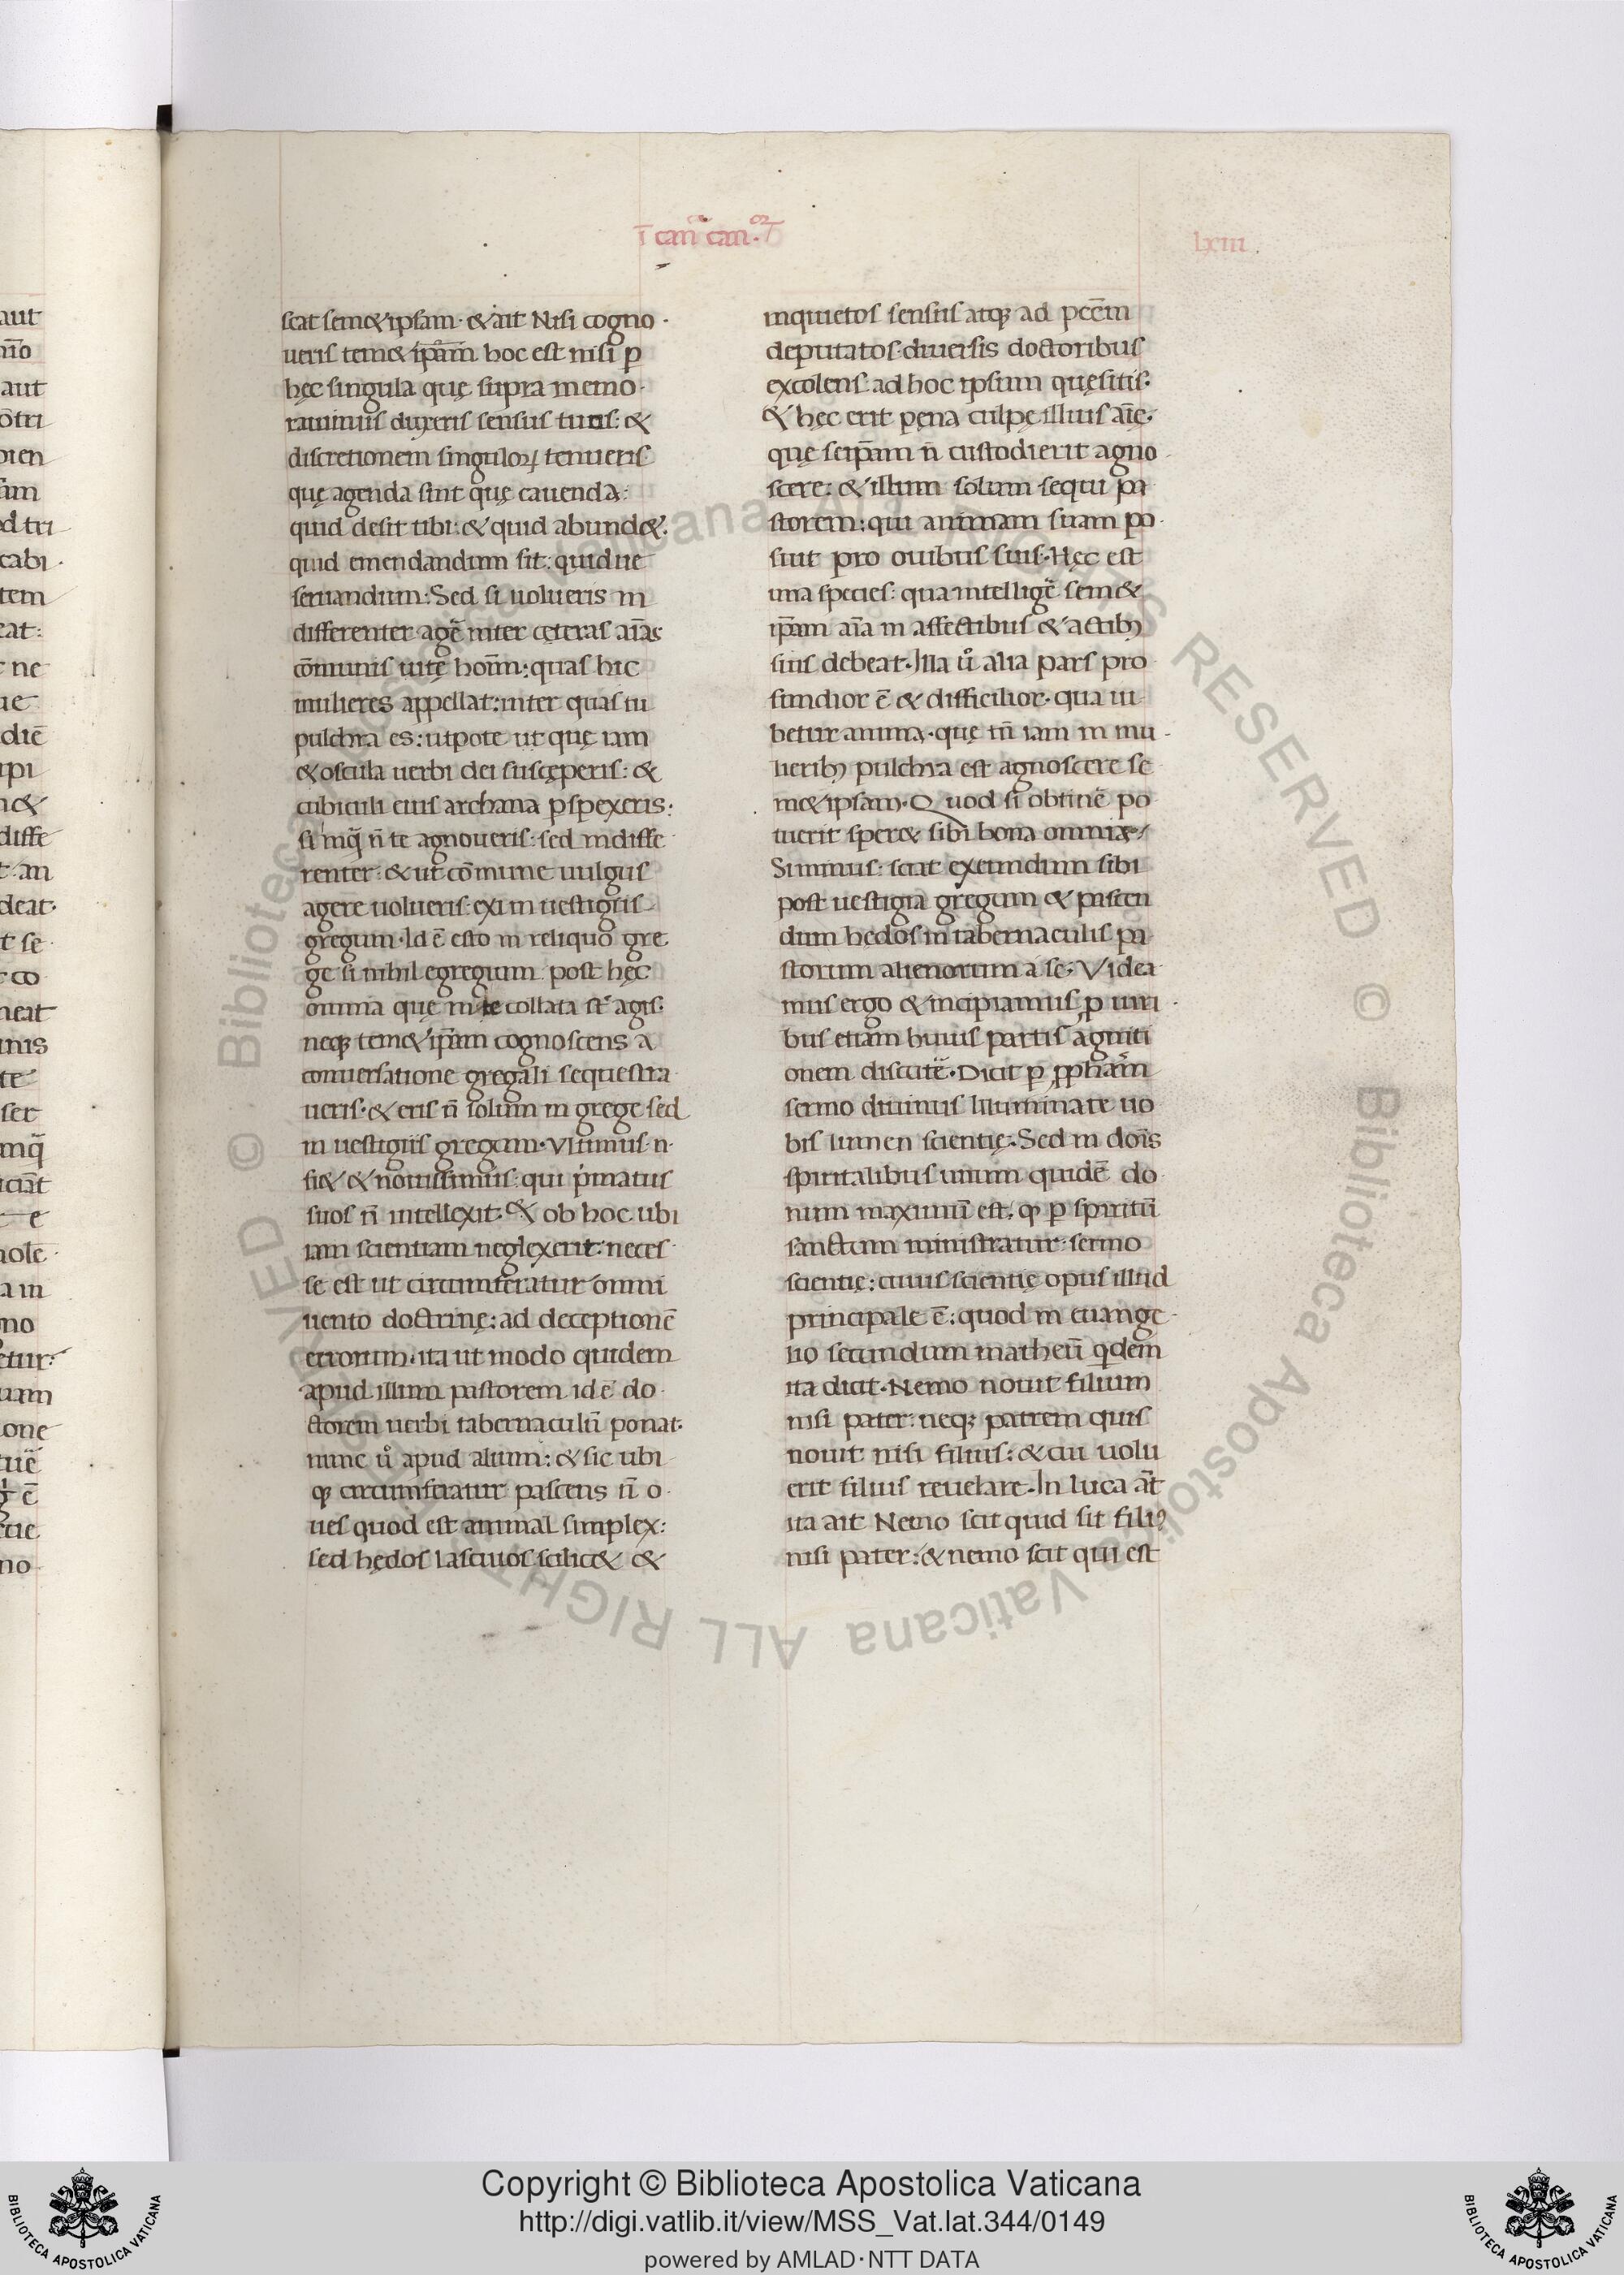 ī can̄ can. oꝝ
lxiii.
scat semet ipsam· & ait Nisi cogno·
ueris temet ip̄am hoc est nisi ꝑ
hęc singula quę supra memo·
rauimus duxeris sensus tuos: &
discretionem singuloꝝ tenueris·
quę agenda sint quę cauenda:
quid desit tibi: & quid abundet.
quid emendandum sit: quid ue
seruandum: Sed si uolueris in
differenter agē inter cęteras aīas
cōmunis uitę hoīm: quas hic
mulieres appellat: inter quas tu
pulchra es: utpote ut quę iam
& oscula uerbi dei suscęperis: &
cubiculi eius archana ꝑspexeris:
si inq̄ n̄ te agnoueris: sed indiffe
renter: & ut cōmune uulgus
agere uolueris: exi in uestigiis
gregum· Id ē esto in reliquo gre
ge si nihil egregium post hęc
omnia quę in te collata st̄ agis·
neqꝫ temet ip̄am cognoscens a
conuersatione gregali sequestra
ueris· & eris n̄ solum in grege sed
in uestigiis gregum· Vltimus n·
fiet & nouissimus: qui pͥmatus
suos n̄ intellexit· & ob hoc ubi
iam scientiam neglexerit: neces·
se est ut circumferatur omni
uento doctrinę: ad deceptionē
errorum· ita ut modo quidem
apud illum pastorem id ē do·
ctorem uerbi tabernaculū ponat·
nunc uͦ apud alium: & sic ubi·
qꝫ circumferatur pascens n̄ o·
ues quod est animal simplex:
sed hędos lasciuos scilicet &
inquietos sensus atqꝫ ad pccm̄
deputatos diuersis doctoribus
excolens: ad hoc ipsum quęsitis·
& hęc erit pęna culpę illius aīę·
quę seip̄am n̄ custodierit agno·
scere: & illum solum sequi pa
storem: qui animam suam po·
suit pro ouibus suis· Hęc est
una species: qua intelligē semet
ip̄am aīa in affectibus & actibꝫ
suis debeat· Illa uͦ alia pars pro
fundior ē & difficilior· qua iu·
betur anima· quę tn̄ iam in mu·
lieribꝫ pulchra est agnoscere se
met ipsam· Quod si obtinē po
tuerit speret sibi bona omnia·/
Si minus: sciat exeundum sibi
post uestigia gregum & pascen
dum hedos in tabernaculis pa
storum alienorum a se· Videa
mus ergo & incipiamus ꝓ uiri·
bus etiam huius partis agniti
onem discutē· Dicit ꝑ ꝓpham̄
sermo diuinus Illuminate uo
bis lumen scientię· Sed in doīs
spiritalibus unum quidē do·
num maximū est, qꝫ ꝑ spiritū
sanctum ministratur sermo
scientię: cuius scientię opus illud
principale ē: quod in euange·
lio secundum matheū q̇dem
ita dicit· Nemo nouit filium
nisi pater: neqꝫ patrem quis
nouit nisi filius: & cui uolu
erit filius reuelare· In luca āt
ita ait Nemo scit quid sit fili⁹
nisi pater: & nemo scit qui est
Copyright © Biblioteca Apostolica Vaticana
http://digi.vatlib.it/view/MSS_Vat.lat.344/0149
powered by AMLAD·NTT DATA
BIBLIOTECA APOSTOLICA VATICANA
BIBLIOTECA APOSTOLICA VATICANA
© Biblioteca Apostolica Vaticana ALL RIGHTS RESERVED © Biblioteca Apostolica Vaticana ALL RIGHTS RESERVED